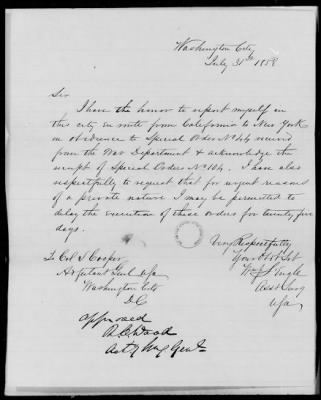 Washington City
July 31st 1858
Sir
I have the honor to report myself in
this city en route from California to New York
in obedience to Special Order No 44
from the War Department & acknowledge the
receipt of Special Orders No 104. I have also
respectfully to request that for urgent reasons
of a private nature I may be permitted to
delay the execution of these orders for twenty five
days.
Very Respectfully
Your Obt Svt
Asst Surg
USA
To Col S Cooper
Adjutant Genl USA
Washington City
DC
approved
R. C. Wood
Actg Surg Genl